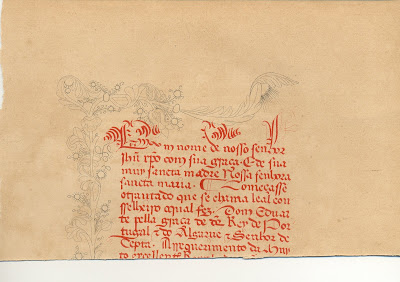 Em nome de nosso senhor
Jhũ xpo com sua graça. E de sua
muy sancta madre Nossa senhora
sancta maria. Começasse
otrautado que se chama leal con
selheiro oqual fez. Dom Eduar
te pella graça de ds Rey de Por
tugal z do Algarve z Senhor de
Cepta. A requerimento da muy
to excellente